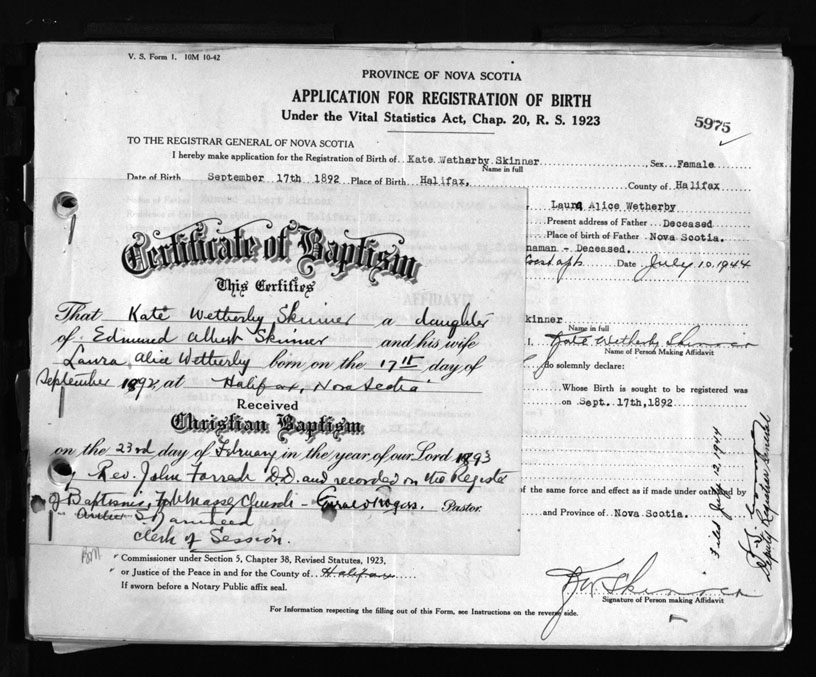 V. S. Form 1. 10M 10-42
PROVINCE OF NOVA SCOTIA
APPLICATION FOR REGISTRATION OF BIRTH
Under the Vital Statistics Act, Chap. 20, R. S. 1923
5975
TO THE REGISTRAR GENERAL OF NOVA SCOTIA
I hereby make application for the Registration of Birth of Kate Wetherby Skinner Sex Female
Name in full
Date of Birth September 17th 1892 Place of Birth Halifax, County of Halifax
Laura Alice Wetherby
Present address of Father Deceased
Place of birth of Father Nova Scotia.
naman - Deceased.
Date July 10, 1944
Certificate of Baptism
This Certifies
That Kate Wetherby Skinner a daughter
of Edmund Albert Skinner and his wife
Laura Alice Wetherby born on the 17th day of
September 1892, at Halifax, Nova Scotia
Received
Christian Baptism
on the 23rd day of February in the year of our Lord 1893
by Rev. John Forrest D.D. and recorded on the Register
of Baptisms, Fort Massey Church - Pastor.
Clerk of Session.
kinner
Name in full
I, Kate Wetherby Skinner
Name of Person Making Affidavit
do solemnly declare:
Whose Birth is sought to be registered was
on Sept. 17th, 1892
of the same force and effect as if made under oath
and Province of Nova Scotia.
Filed July 12, 1944
Deputy Registrar General
Commissioner under Section 5, Chapter 38, Revised Statutes, 1923,
or Justice of the Peace in and for the County of Halifax
If sworn before a Notary Public affix seal.
K W Skinner
Signature of Person making Affidavit
For Information respecting the filling out of this Form, see Instructions on the reverse side.